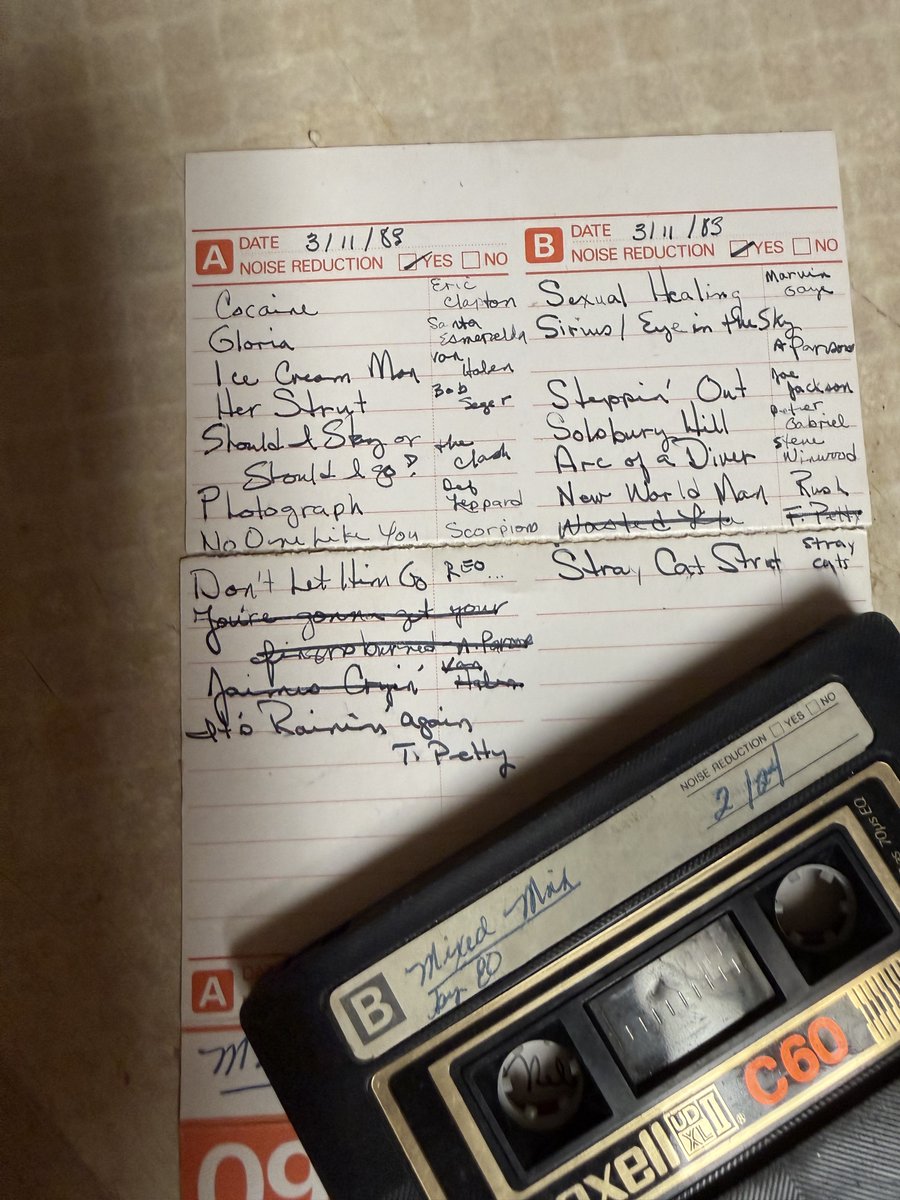 A DATE 3/11/83
NOISE REDUCTION YES NO
Cocaine Eric Clapton
Gloria Santa Esmerelda
Ice Cream Man Van Halen
Her Strut Bob Seger
Should I Stay or the Clash
Should I go?
Photograph Def Leppard
No One Like You Scorpions
Don't Let Him Go REO...
You're gonna get your
fingers burned A. Parsons
Jaimes Cryin' Van Halen
It's Raining again
T. Petty
B DATE 3/11/83
NOISE REDUCTION YES NO
Sexual Healing Marvin Gaye
Sirius / Eye in the Sky
A Parsons
Steppin' Out Joe Jackson
Solsbury Hill Peter Gabriel
Arc of a Diver Steve Winwood
New World Man Rush
Wasted T. Petty
Stray Cat Strut Stray Cats
NOISE REDUCTION YES NO
2/84
B Mixed
70µs EQ
maxell UD XL II C60
A